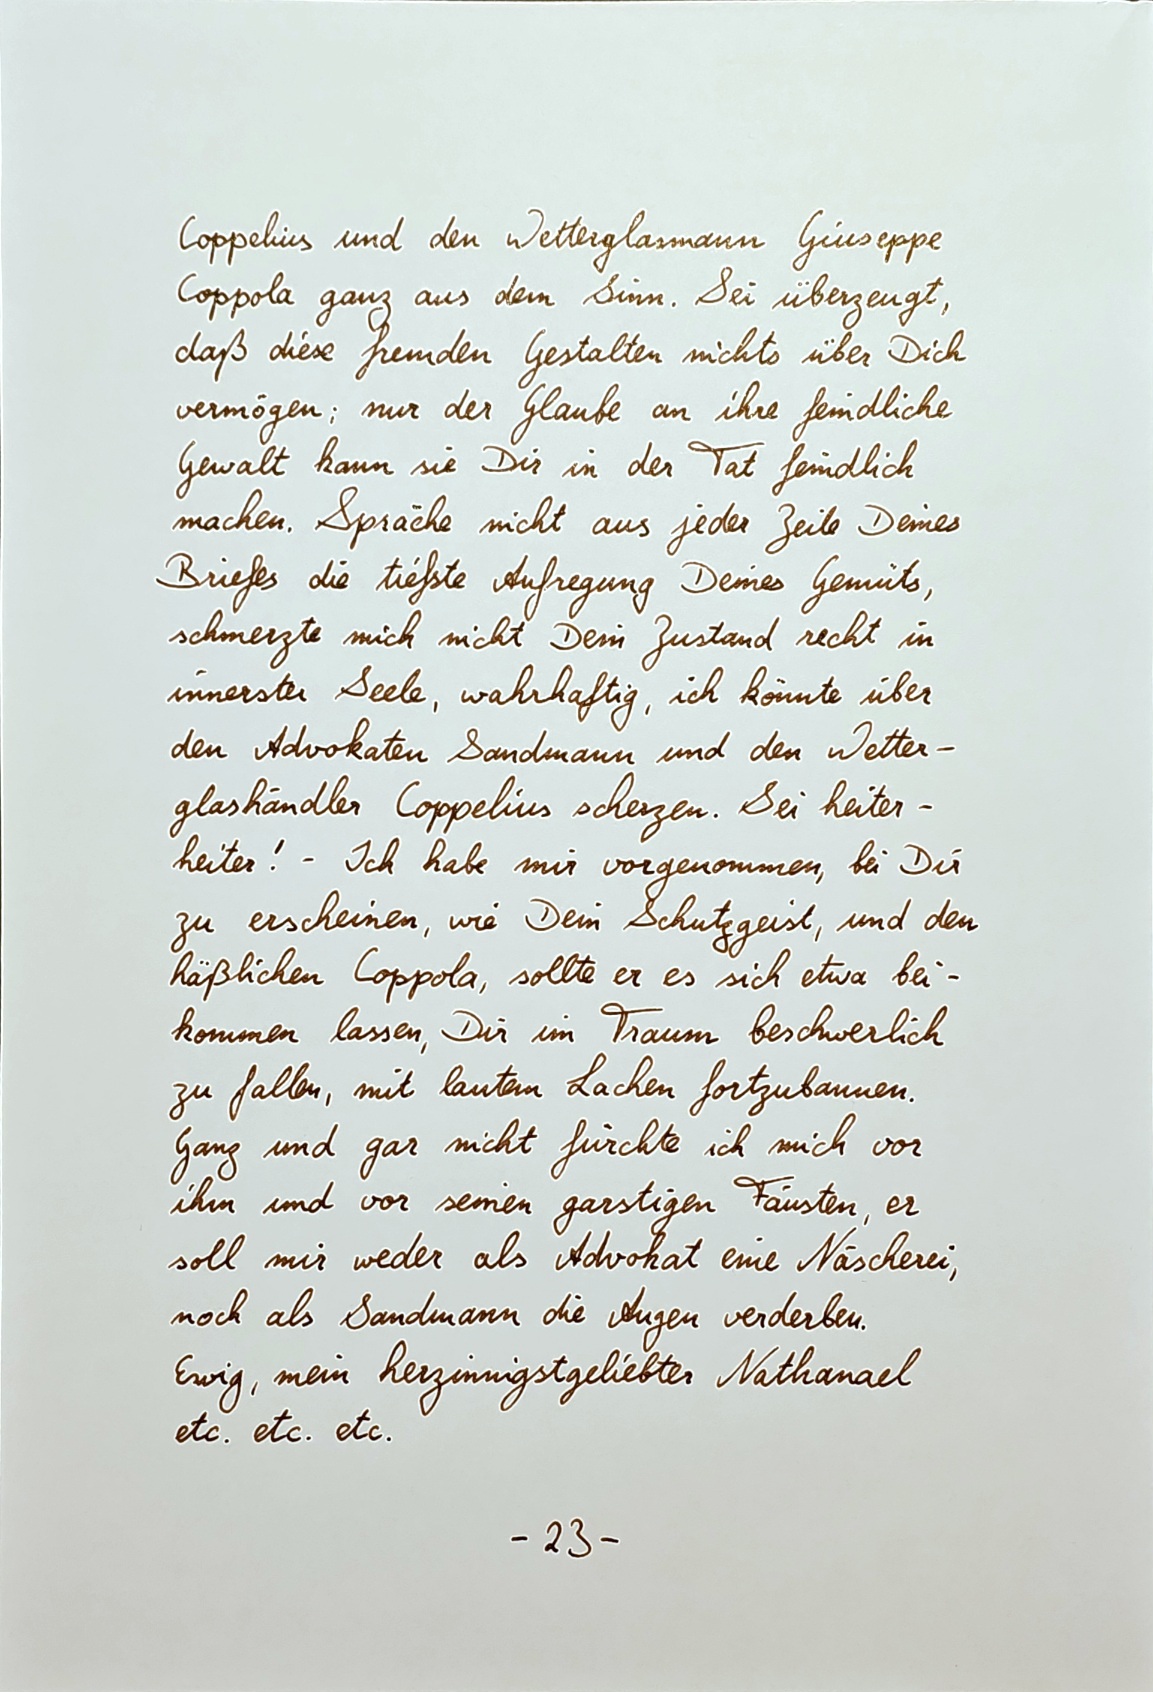 Coppelius und den Wetterglasmann Giuseppe
Coppola ganz aus dem Sinn. Sei überzeugt,
daß diese fremden Gestalten nichts über Dich
vermögen; nur der Glaube an ihre feindliche
Gewalt kann sie Dir in der Tat feindlich
machen. Spräche nicht aus jeder Zeile Deines
Briefes die tiefste Aufregung Deines Gemüts,
schmerzte mich nicht Dein Zustand recht in
innerster Seele, wahrhaftig, ich könnte über
den Advokaten Sandmann und den Wetter-
glashändler Coppelius scherzen. Sei heiter -
heiter! - Ich habe mir vorgenommen, bei Dir
zu erscheinen, wie Dein Schutzgeist, und den
häßlichen Coppola, sollte er es sich etwa bei-
kommen lassen, Dir im Traum beschwerlich
zu fallen, mit lautem Lachen fortzubannen.
Ganz und gar nicht fürchte ich mich vor
ihm und vor seinen garstigen Fäusten, er
soll mir weder als Advokat eine Näscherei,
noch als Sandmann die Augen verderben.
Ewig, mein herzinnigstgeliebter Nathanael
etc. etc. etc.
- 23 -